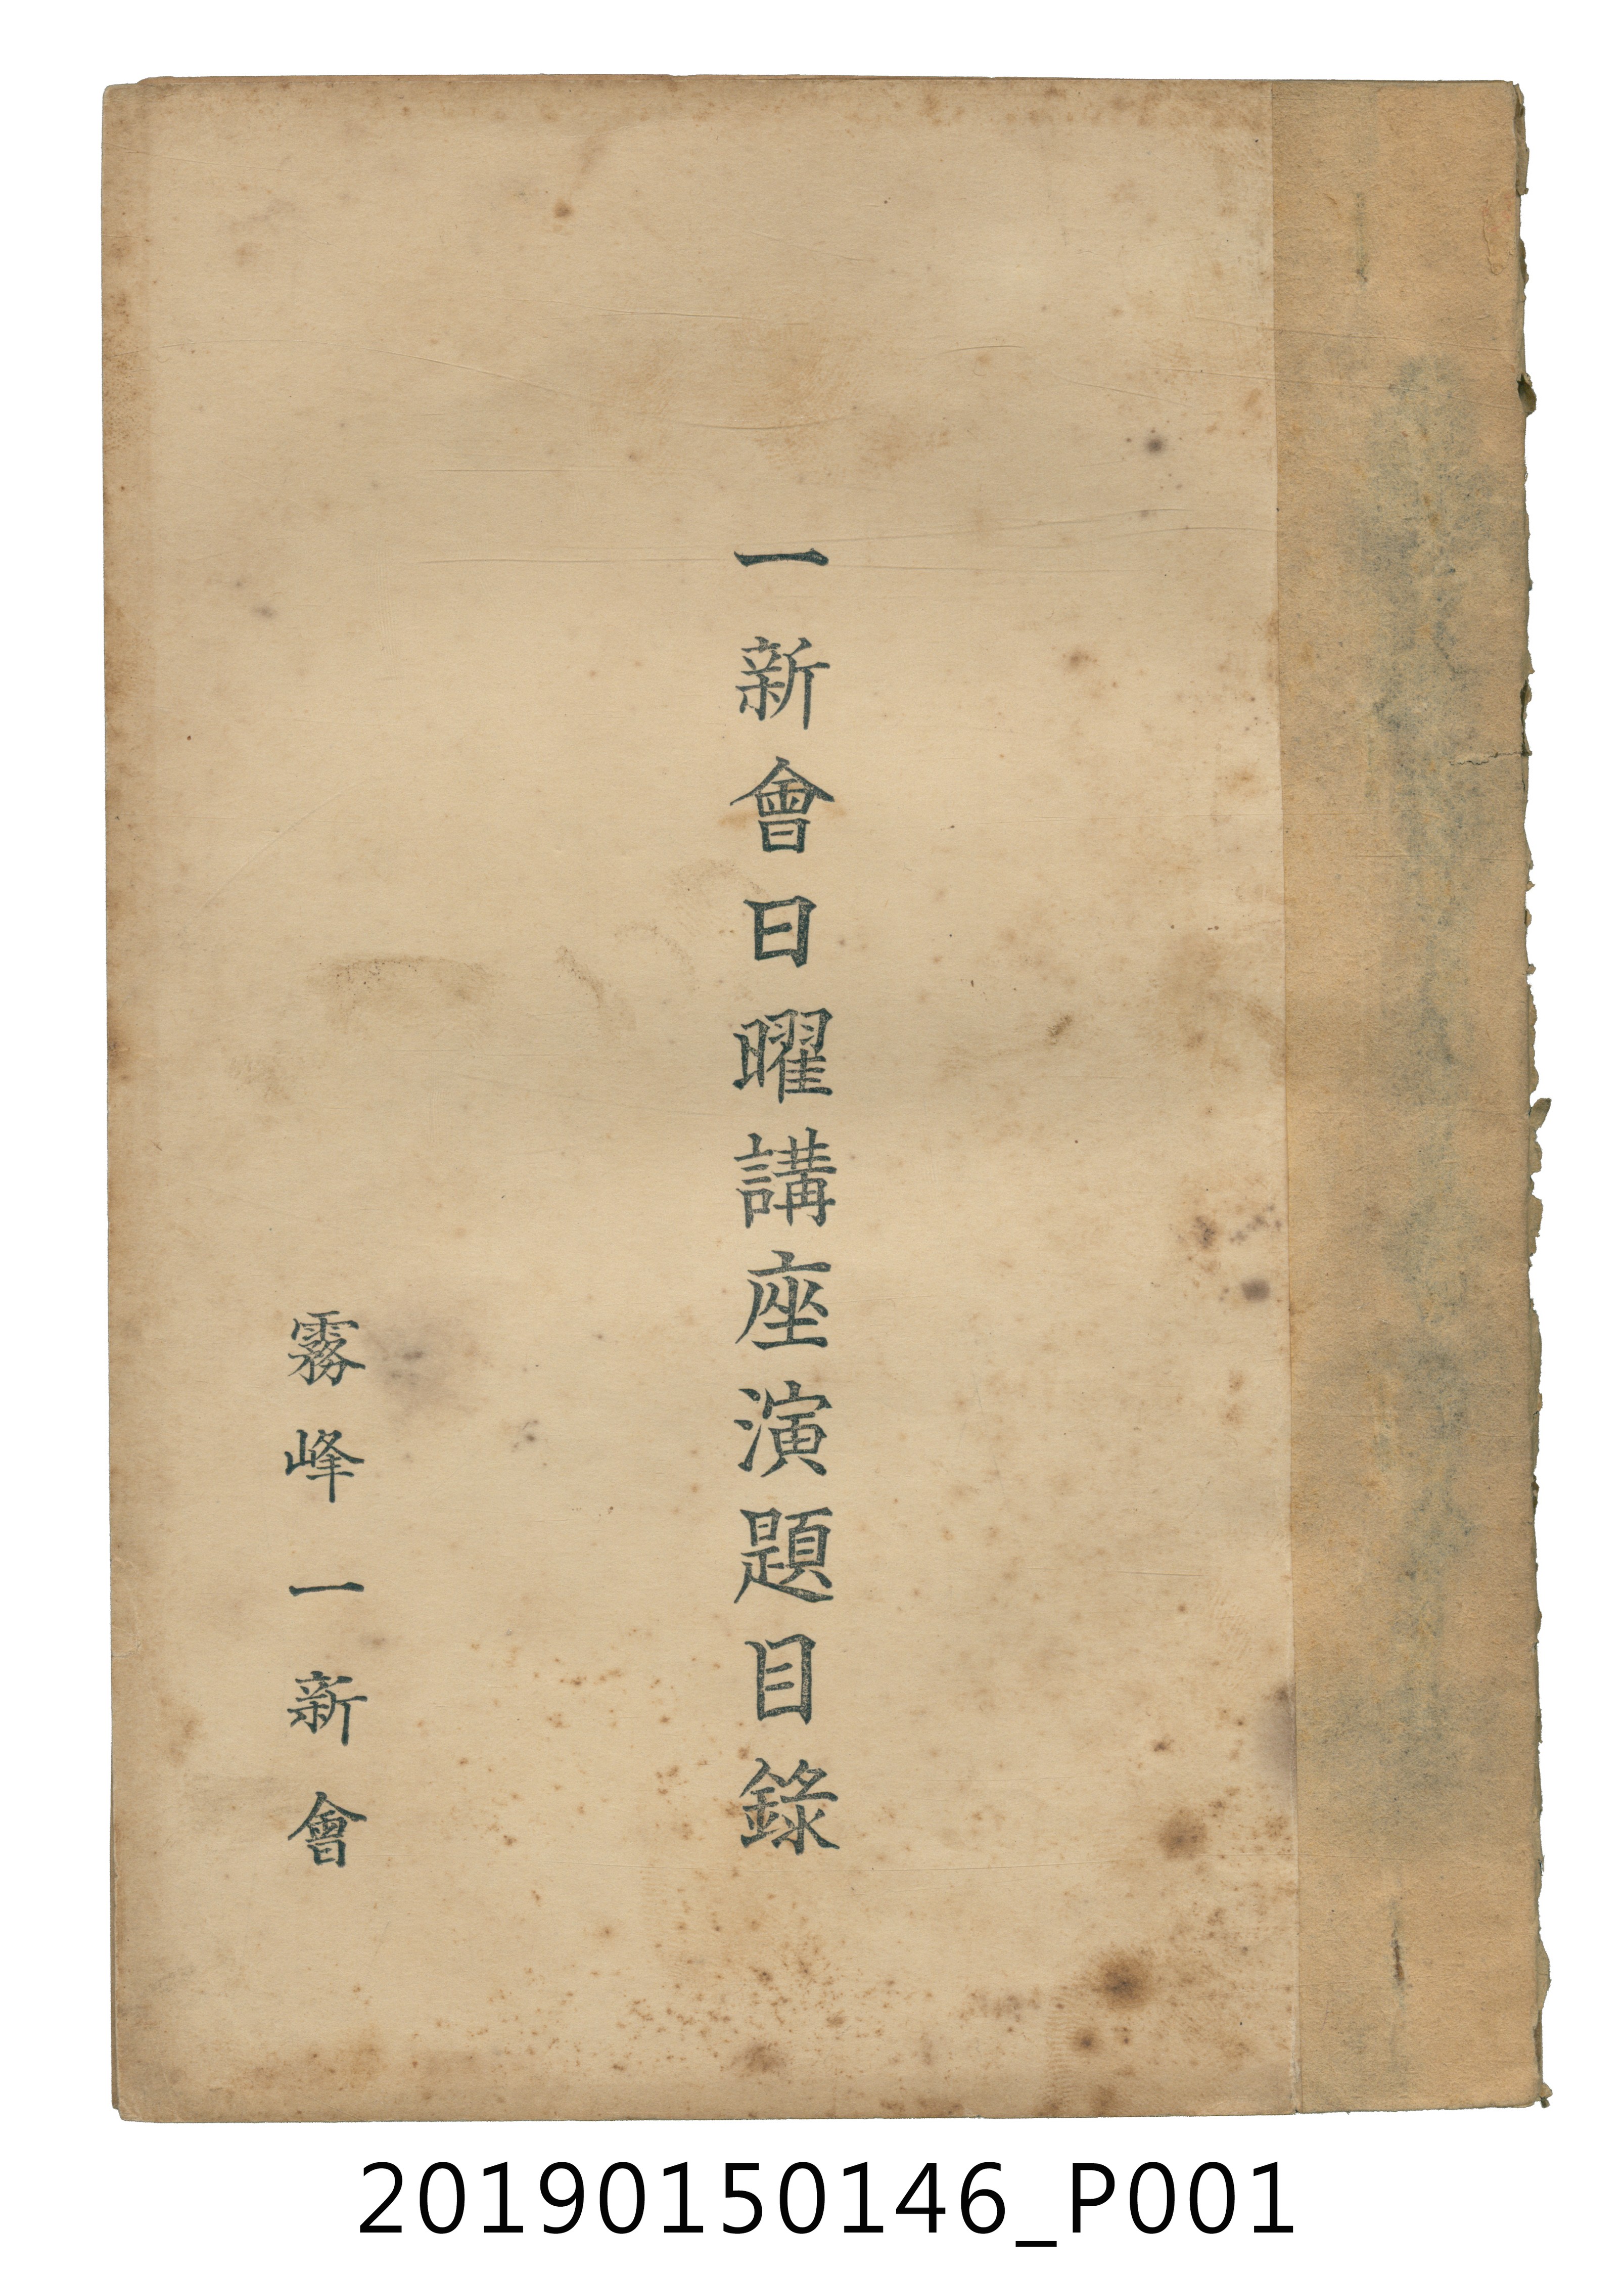 一新會日曜講座演題目錄
霧峰一新會
20190150146_P001